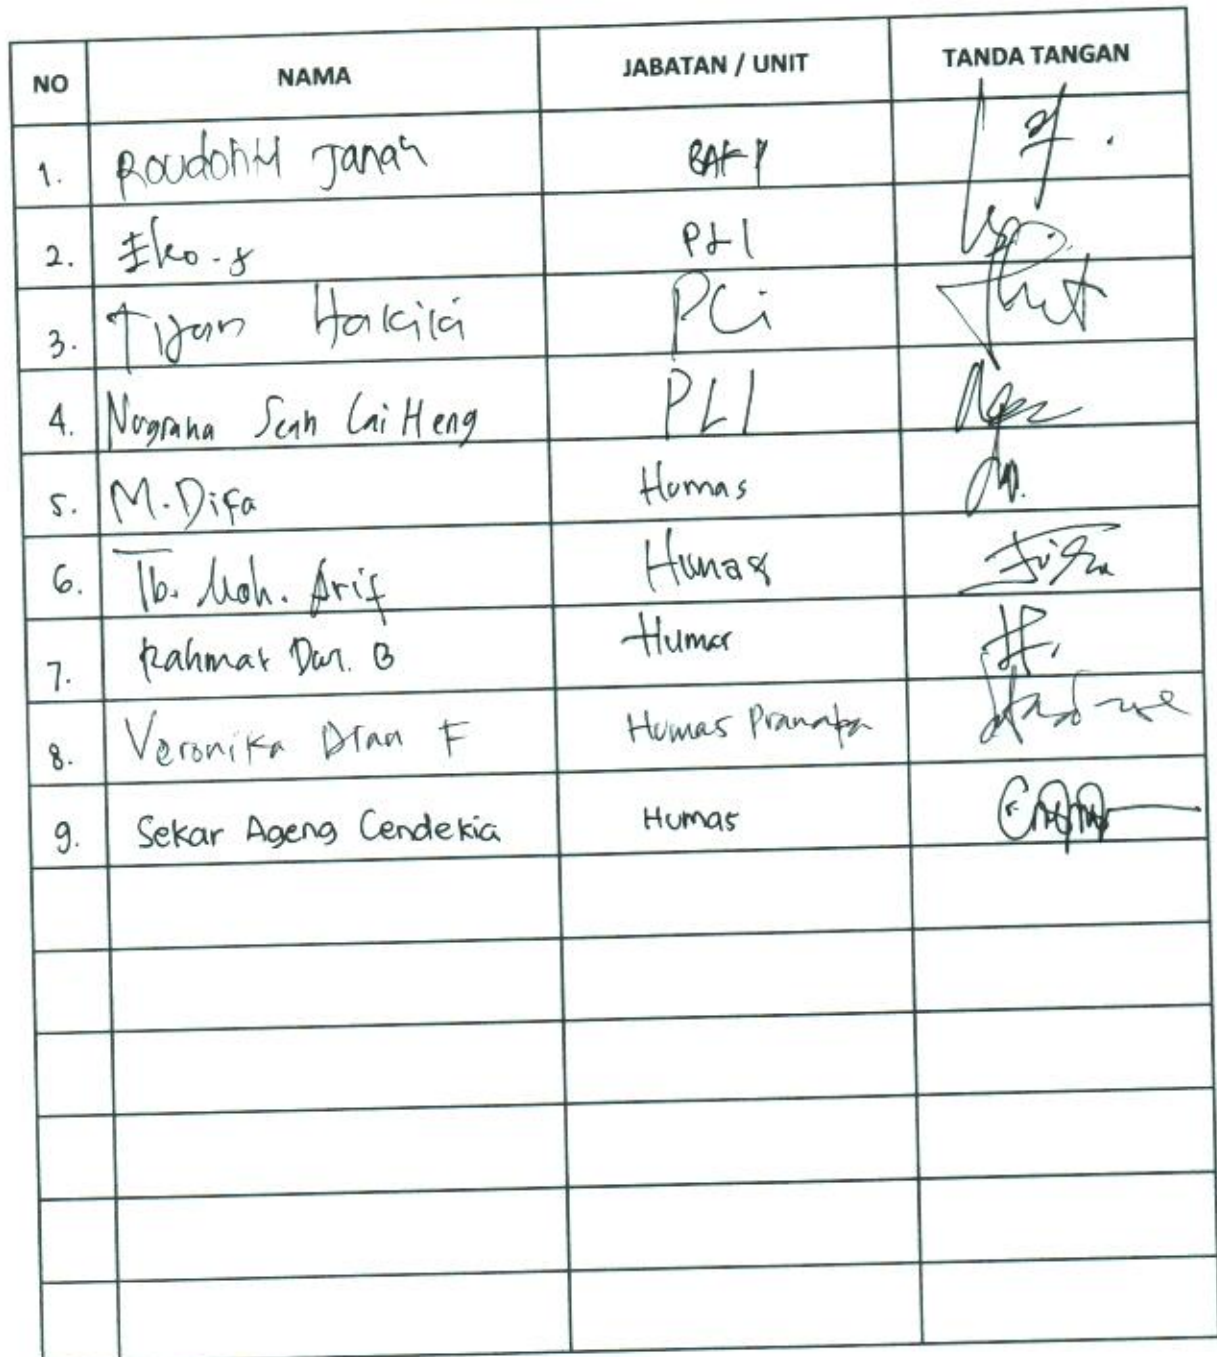 NO NAMA JABATAN / UNIT TANDA TANGAN
1. Roudohtul Janah
2. Eko.s PLI
3. Tijan Hakiki PLi
4. Nugraha Sean Lai Heng PLI
5. M. Difa Humas
6. Tb. Moh. Arif Humas
7. Rahmat Dar. B Humas
8. Veronika Dian F Humas
9. Sekar Ageng Cendekia Humas